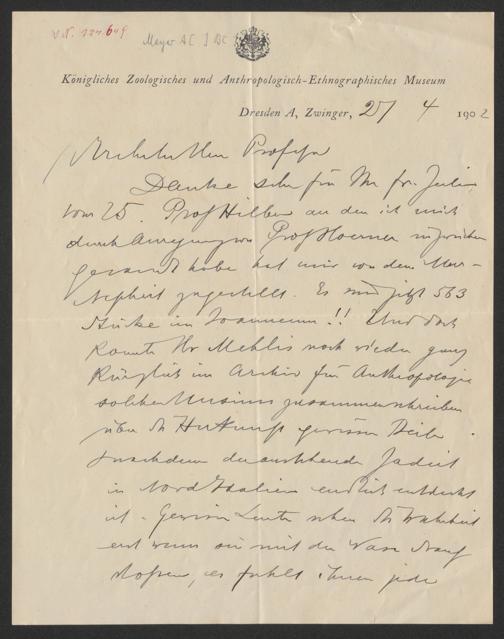 V.N. 124.649
Meyer A B
Königliches Zoologisches und Anthropologisch-Ethnographisches Museum
Dresden A, Zwinger, 27 4 1902
Professor
Danke sehr für Ihr fr. Zeilen
vom 25. Prof Hilber an den ich mich
durch Anregung von Prof Hoernes inzwischen
gesandt habe hat mir von dem Mur-
Nephrit zugestellt. Es sind jetzt 563
Stücke im Joanneum!! Und doch
konnte Hr Mehlis noch wieder ganz
kürzlich im Archiv für Anthropologie
solchen Unsinn zusammenschreiben
über die Herkunft gewisser Beile
nachdem der anstehende Jadeit
in Norditalien endlich entdeckt
ist. Gewisse Leute sehen die Wahrheit
erst wenn sie mit der Nase drauf
stossen, es fehlt ihnen jede